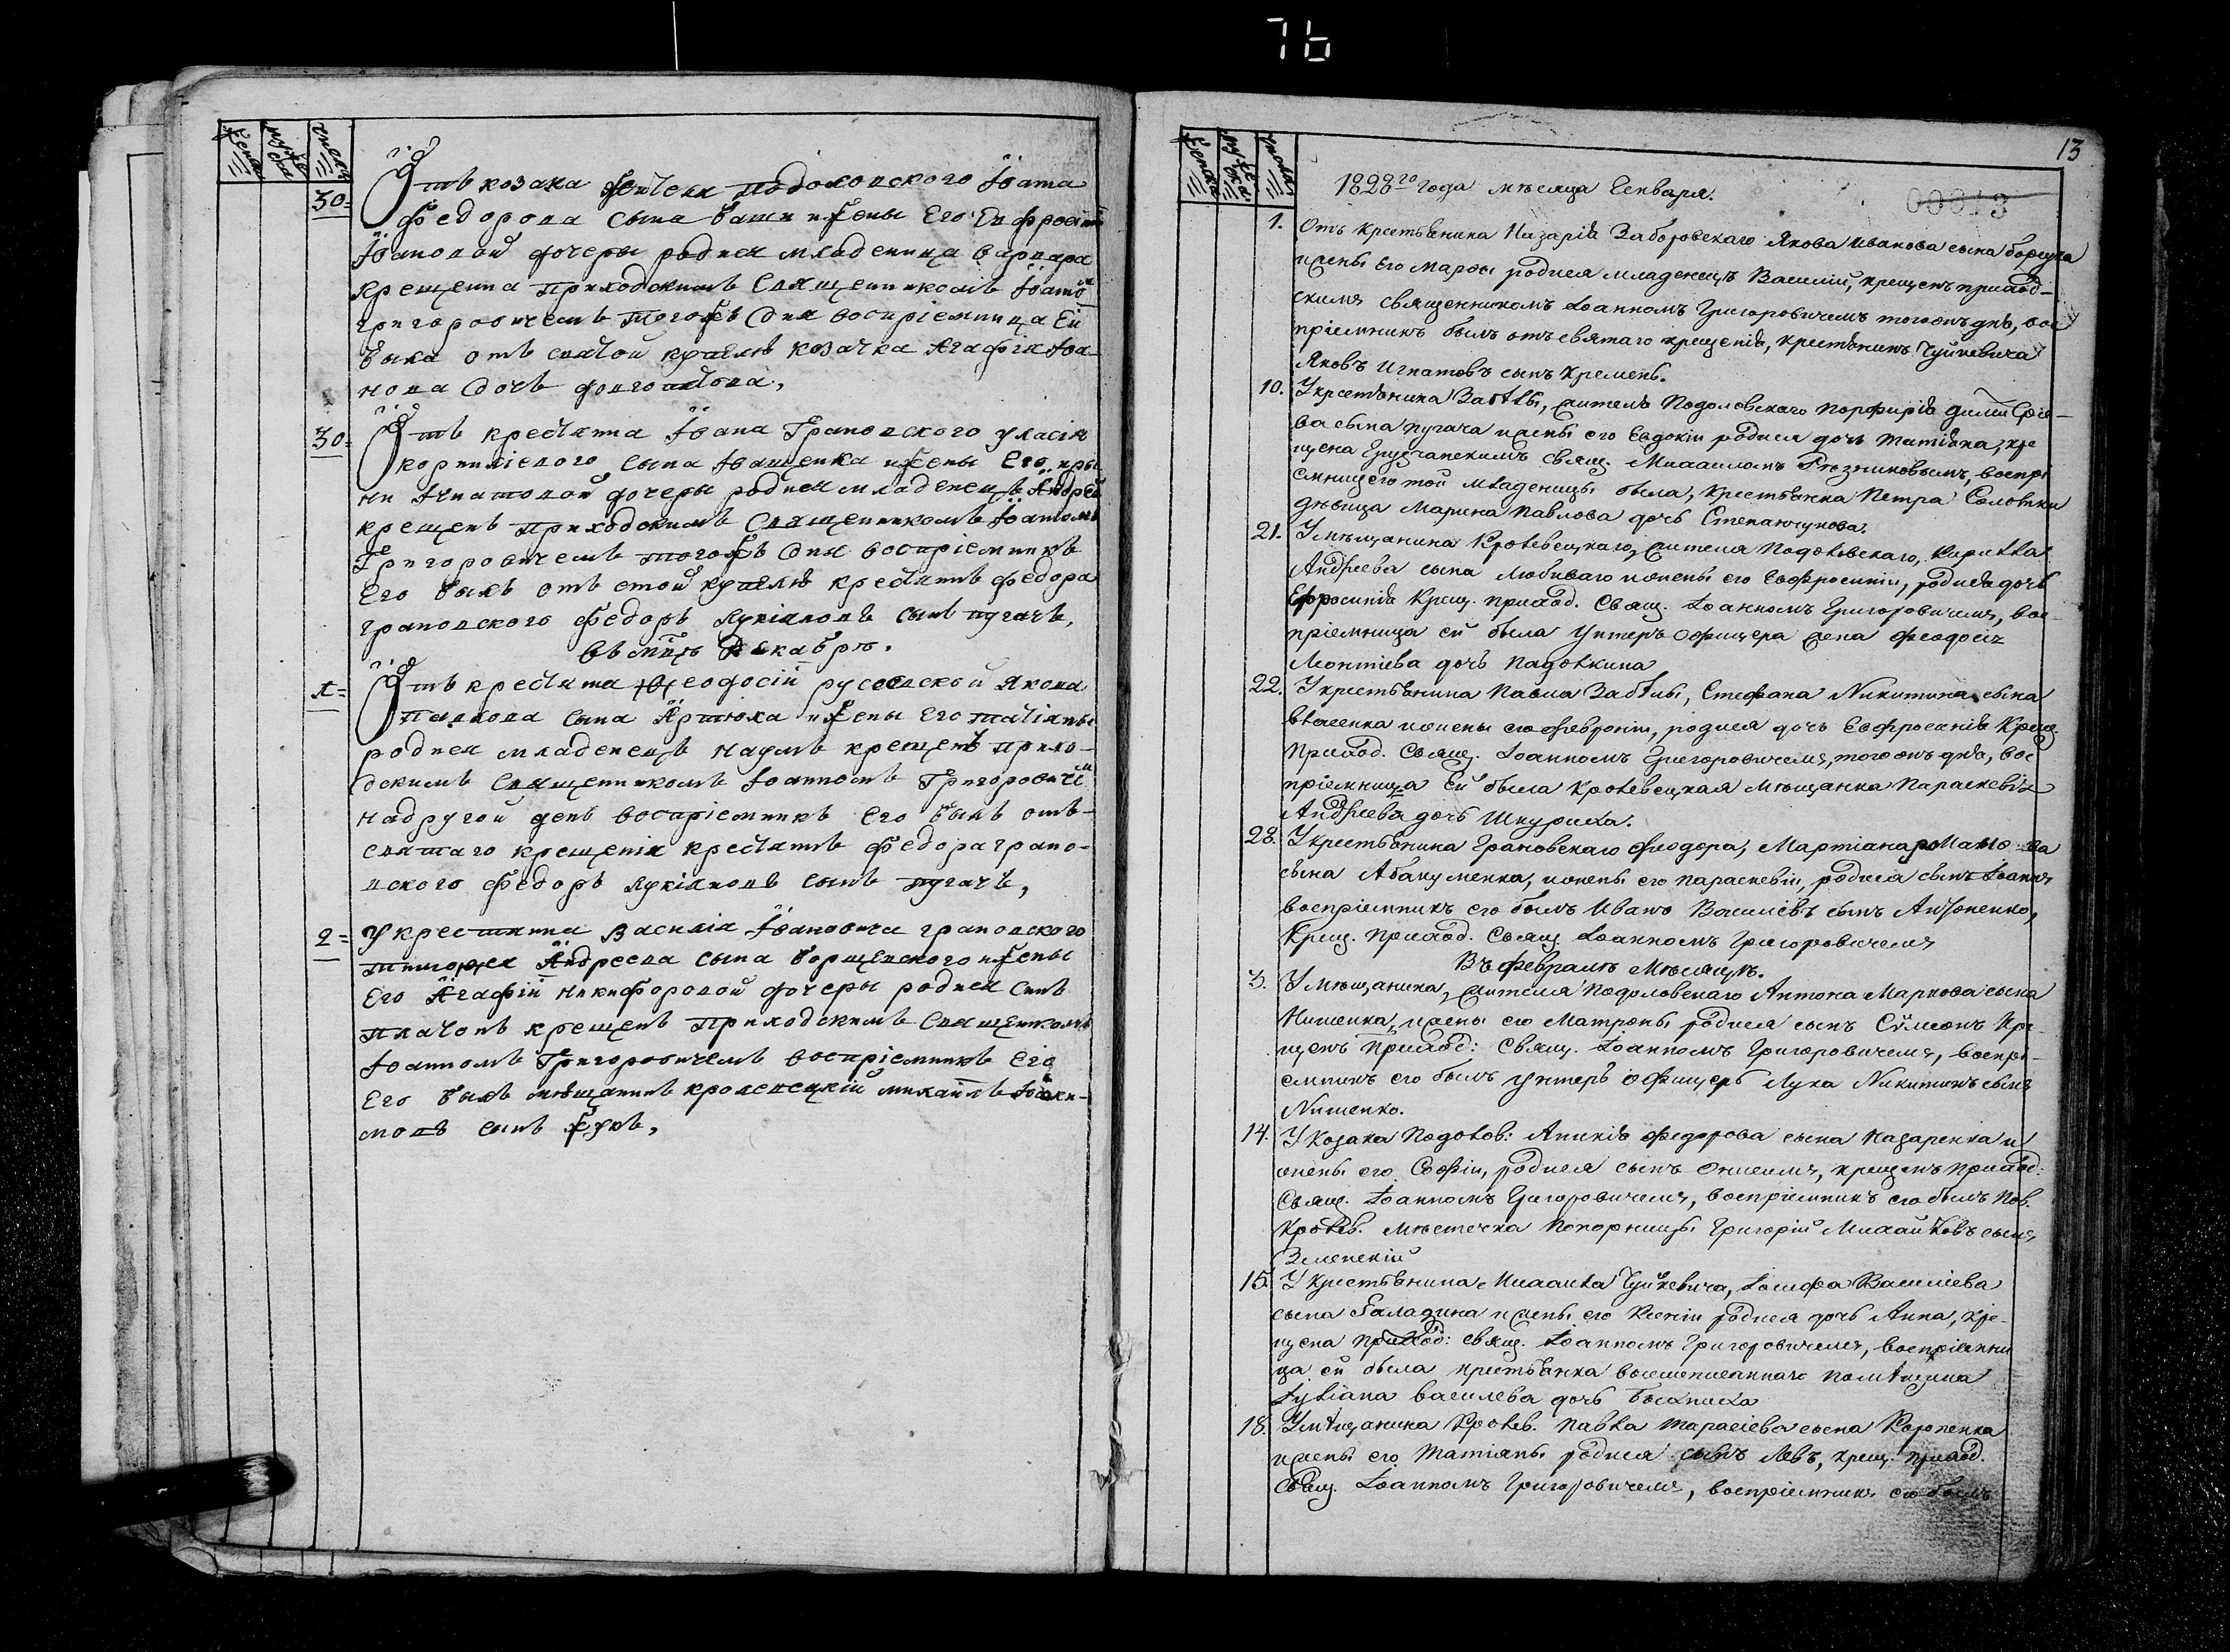 76
женска
мужеска
число
30=
Отъ козака жителя подоловского Іоана
Федорова сына Баши и жены Его Евфросинии
Іоановой дочеры родися младеница варвара
крещенна приходскимъ Священникомъ Іоаномъ
григоровичемъ тогожъ Дня воспріемница Ей
была отъ святой купели козачка Агафія Іоа-
нова Дочь
30=
Отъ крестянина Іоана Грановского уласія
корниліевого сына Іващенка и жены Его ири
ни Игнатовой дочеры родися младенецъ Андрей
крещенъ приходскимъ Священникомъ Іоаномъ
Григоровичемъ тогожъ Дня воспріемникъ
Его былъ отъ стой купели крестянинъ федора
грановского федоръ лукіяновъ сынъ пугачъ,
въ мцѣ Декабрѣ.
1=
Отъ крестянина Феодосій русовской Якова
павлова сына Артюха и жены Его татіяны
родися младенецъ наумъ крещенъ прихо-
дскимъ Священникомъ Іоанномъ Григорович
на другой день воспріемникъ Его былъ отъ-
святаго крещенія крестянинъ федора грано-
вского федоръ лукіяновъ сынъ пугачъ,
2=
У крестянина василія Іоановича грановского
тимофея Андреева сына борщевского и жены
Его Агафій никифоровой дочеры родися сынъ
платонъ крещенъ приходскимъ Священикомъ
Іоанномъ Григоровичемъ воспріемникъ Его
Его былъ мѣщанинъ кролевецкій михаилъ Іоаки-
мовъ сынъ жукъ,
13
00813
женска
мужеска
числа
1828го года мѣсяца Генваря.
1. Отъ крестьянина Назарія Заборовскаго Якова Иванова сына борщука
и жены его Марѳы родился младенецъ Василій, крещенъ приход-
скимъ священникомъ Іоанномъ Григоровичемъ тогожъ дня, вос
пріемникъ былъ отъ святаго крещенія, крестьянинъ Чуйкевича
Яковъ Игнатовъ сынъ Кремень.
10. У крестьянина Забѣлы, жителя Подоловскаго Порфирія
ва сына пугача и жены его Евдокіи родися дочь Татіана, кре
щена свящ. Михаиломъ Рѣзниковымъ, воспрі
емницего той младеницы была, крестьянка Петра Соломки
дѣвица Марина Павлова дочь Степанчукова.
21. У мѣщанина Кролевецкаго, жителя Подоловскаго, Кирилла
Андреева сына Любиваго и жены его Евфросиніи, родися дочь
Ефросинія Крещ. приход. Свящ. Іоанномъ Григоровичемъ, вос-
пріемница ей была Унтеръ офицера жена Феодосія
Леонтіева дочь Падолкина
22. У крестьянина Павла Забѣлы, Стефана Никитина сына
и жены его Февроніи, родися дочь Евфросинія Крещ.
Приход. Свящ. Іоанномъ Григоровичемъ, тогожъ дня, вос
пріемница Ей была Кролевецкая Мѣщанка Параскевія
Андреева дочь Шкуриха.
28. У крестьянина Грановскаго Феодора, Мартіана романо ва
сына Абакуменка, и жены его Параскевіи, родися сынъ Іоаннъ
воспріемникъ его былъ Иванъ Василіевъ сынъ Антоненко,
Крещ. Приход. Свящ. Іоанномъ Григоровичемъ
Въ февралѣ Мѣсяцѣ.
3. У мѣщанина, жителя Подоловскаго Антона Маркова сына
Нишенка, и жены его Матроны родися сынъ Сумеонъ Кре-
щенъ Приход: Свящ. Іоанномъ Григоровичемъ, воспрі-
емникъ его былъ Унтеръ офицеръ Лука Никитинъ сынъ
Нишенко.
14. У Козака Подолов: Аникія Федорова сына Назаренка и
жены его Софіи, родися сынъ Онисимъ, крещенъ приход:
Свящ. Іоанномъ Григоровичемъ, воспріемникъ его былъ Пов.
Кролев. Мѣстечка Понорницы Григорій Михайловъ сынъ
Зеленскій
15. У Крестьянина Михаила Чуйкевича, Іосифа Василіева
сына Галагина и жены его Ксеніи родися дочь Анна, кре-
щена приход: свящ. Іоанномъ Григоровичемъ, воспріемни
ца ей была крестьянка вышеписаннаго помѣщика
Іуліана Василева дочь
18. У мѣщанина Кролев. Павла Тарасіева сына Короненка
и жены его Татіаны родися сынъ Левъ, крещ. приход.
Свящ. Іоанномъ Григоровичемъ, воспріемникъ его былъ